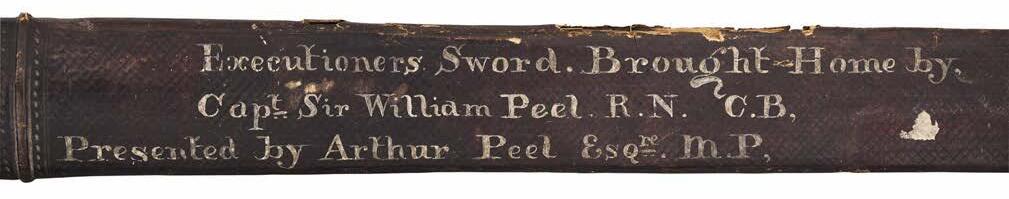 Executioners Sword. Brought Home by,
Capt. Sir William Peel. R.N. C.B,
Presented by Arthur Peel Esqre. M.P,